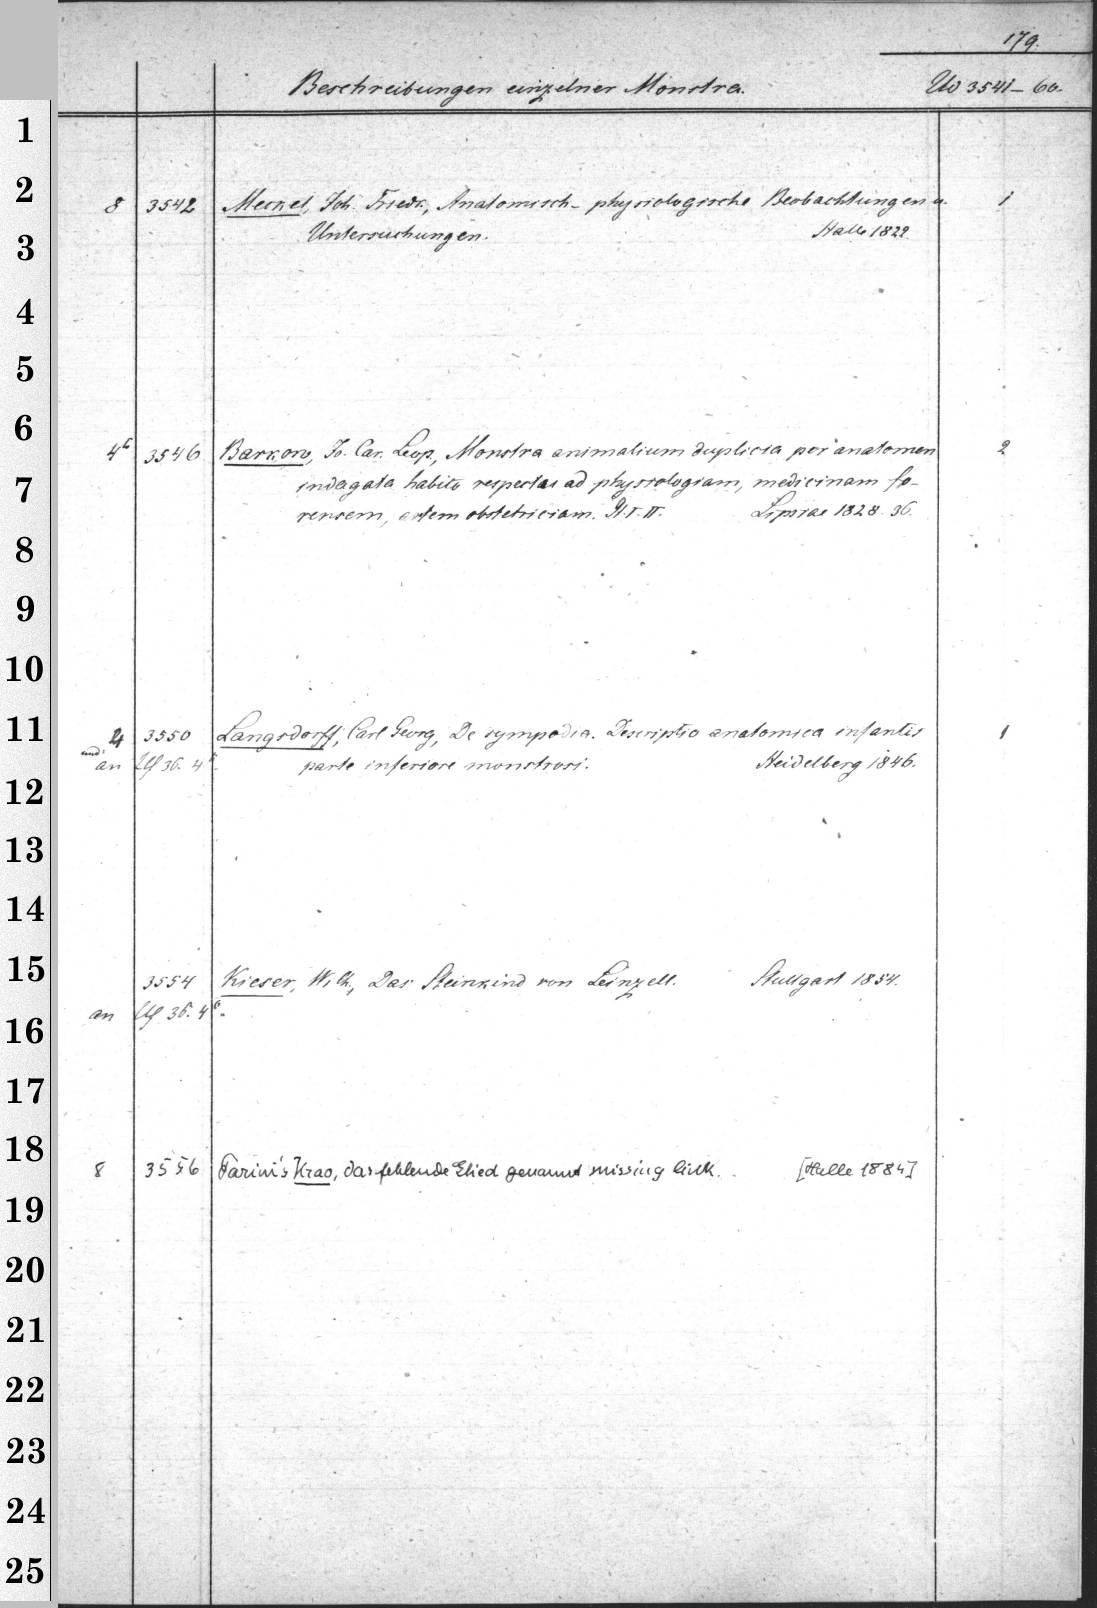 179.
Beschreibungen einzelner Monstra. Uv 3541-60.
1
2
8 3542 Meckel, Joh. Friedr., Anatomisch-physiologische Beobachtungen u. 1
3
Untersuchungen. Halle 1822
4
5
6
4° 3546 Barkow, Jo. Car. Leop., Monstra animalium duplicia per anatomen 2
7
indagata habito respectu ad physiologiam, medicinam fo-
rensem, artem obstetriciam. Pl. I. II. Lipsiae 1828. 36.
8
9
10
11
4 3550 Langsdorff, Carl Georg, De sympodia. Descriptio anatomica infantis 1
an Uf 36. 4°. parte inferiore monstrosi. Heidelberg 1846.
12
13
14
15
3554 Kieser, Wilh., Das Steinkind von Leinzell. Stuttgart 1854.
an Uf 36. 4°.
16
17
18
8 3556 Farini's Krao, das fehlende Glied genannt missing link. [Halle 1884]
19
20
21
22
23
24
25